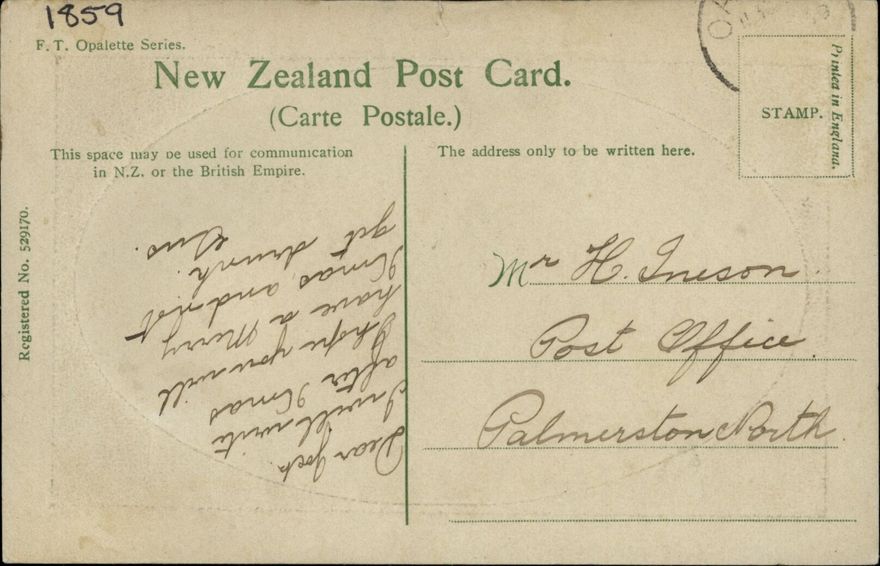 1859
F. T. Opalette Series.
New Zealand Post Card.
(Carte Postale.)
This space may be used for communication
in N.Z. or the British Empire.
The address only to be written here.
STAMP.
Printed in England.
Registered No. 529170.
Dear
I will write
after Xmas
I hope you will
have a Merry
Xmas, and not
get drunk.
Gus.
Mr H. Ineson.
Post Office.
Palmerston North.